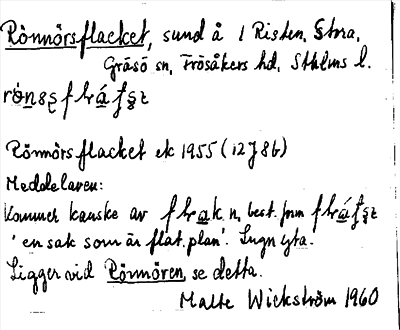 Rönnörsflacket, sund å 1 Risten, Stora,
Gräsö sn, Frösåkers hd, Sthlms l.
Rönnörsflacket ek 1955 (12J8b)
Meddelaren:
Kommer kanske av flak n, best. form
'en sak som är flat, plan'. Lugn yta.
Ligger vid Rönnören, se detta.
Malte Wickström 1960